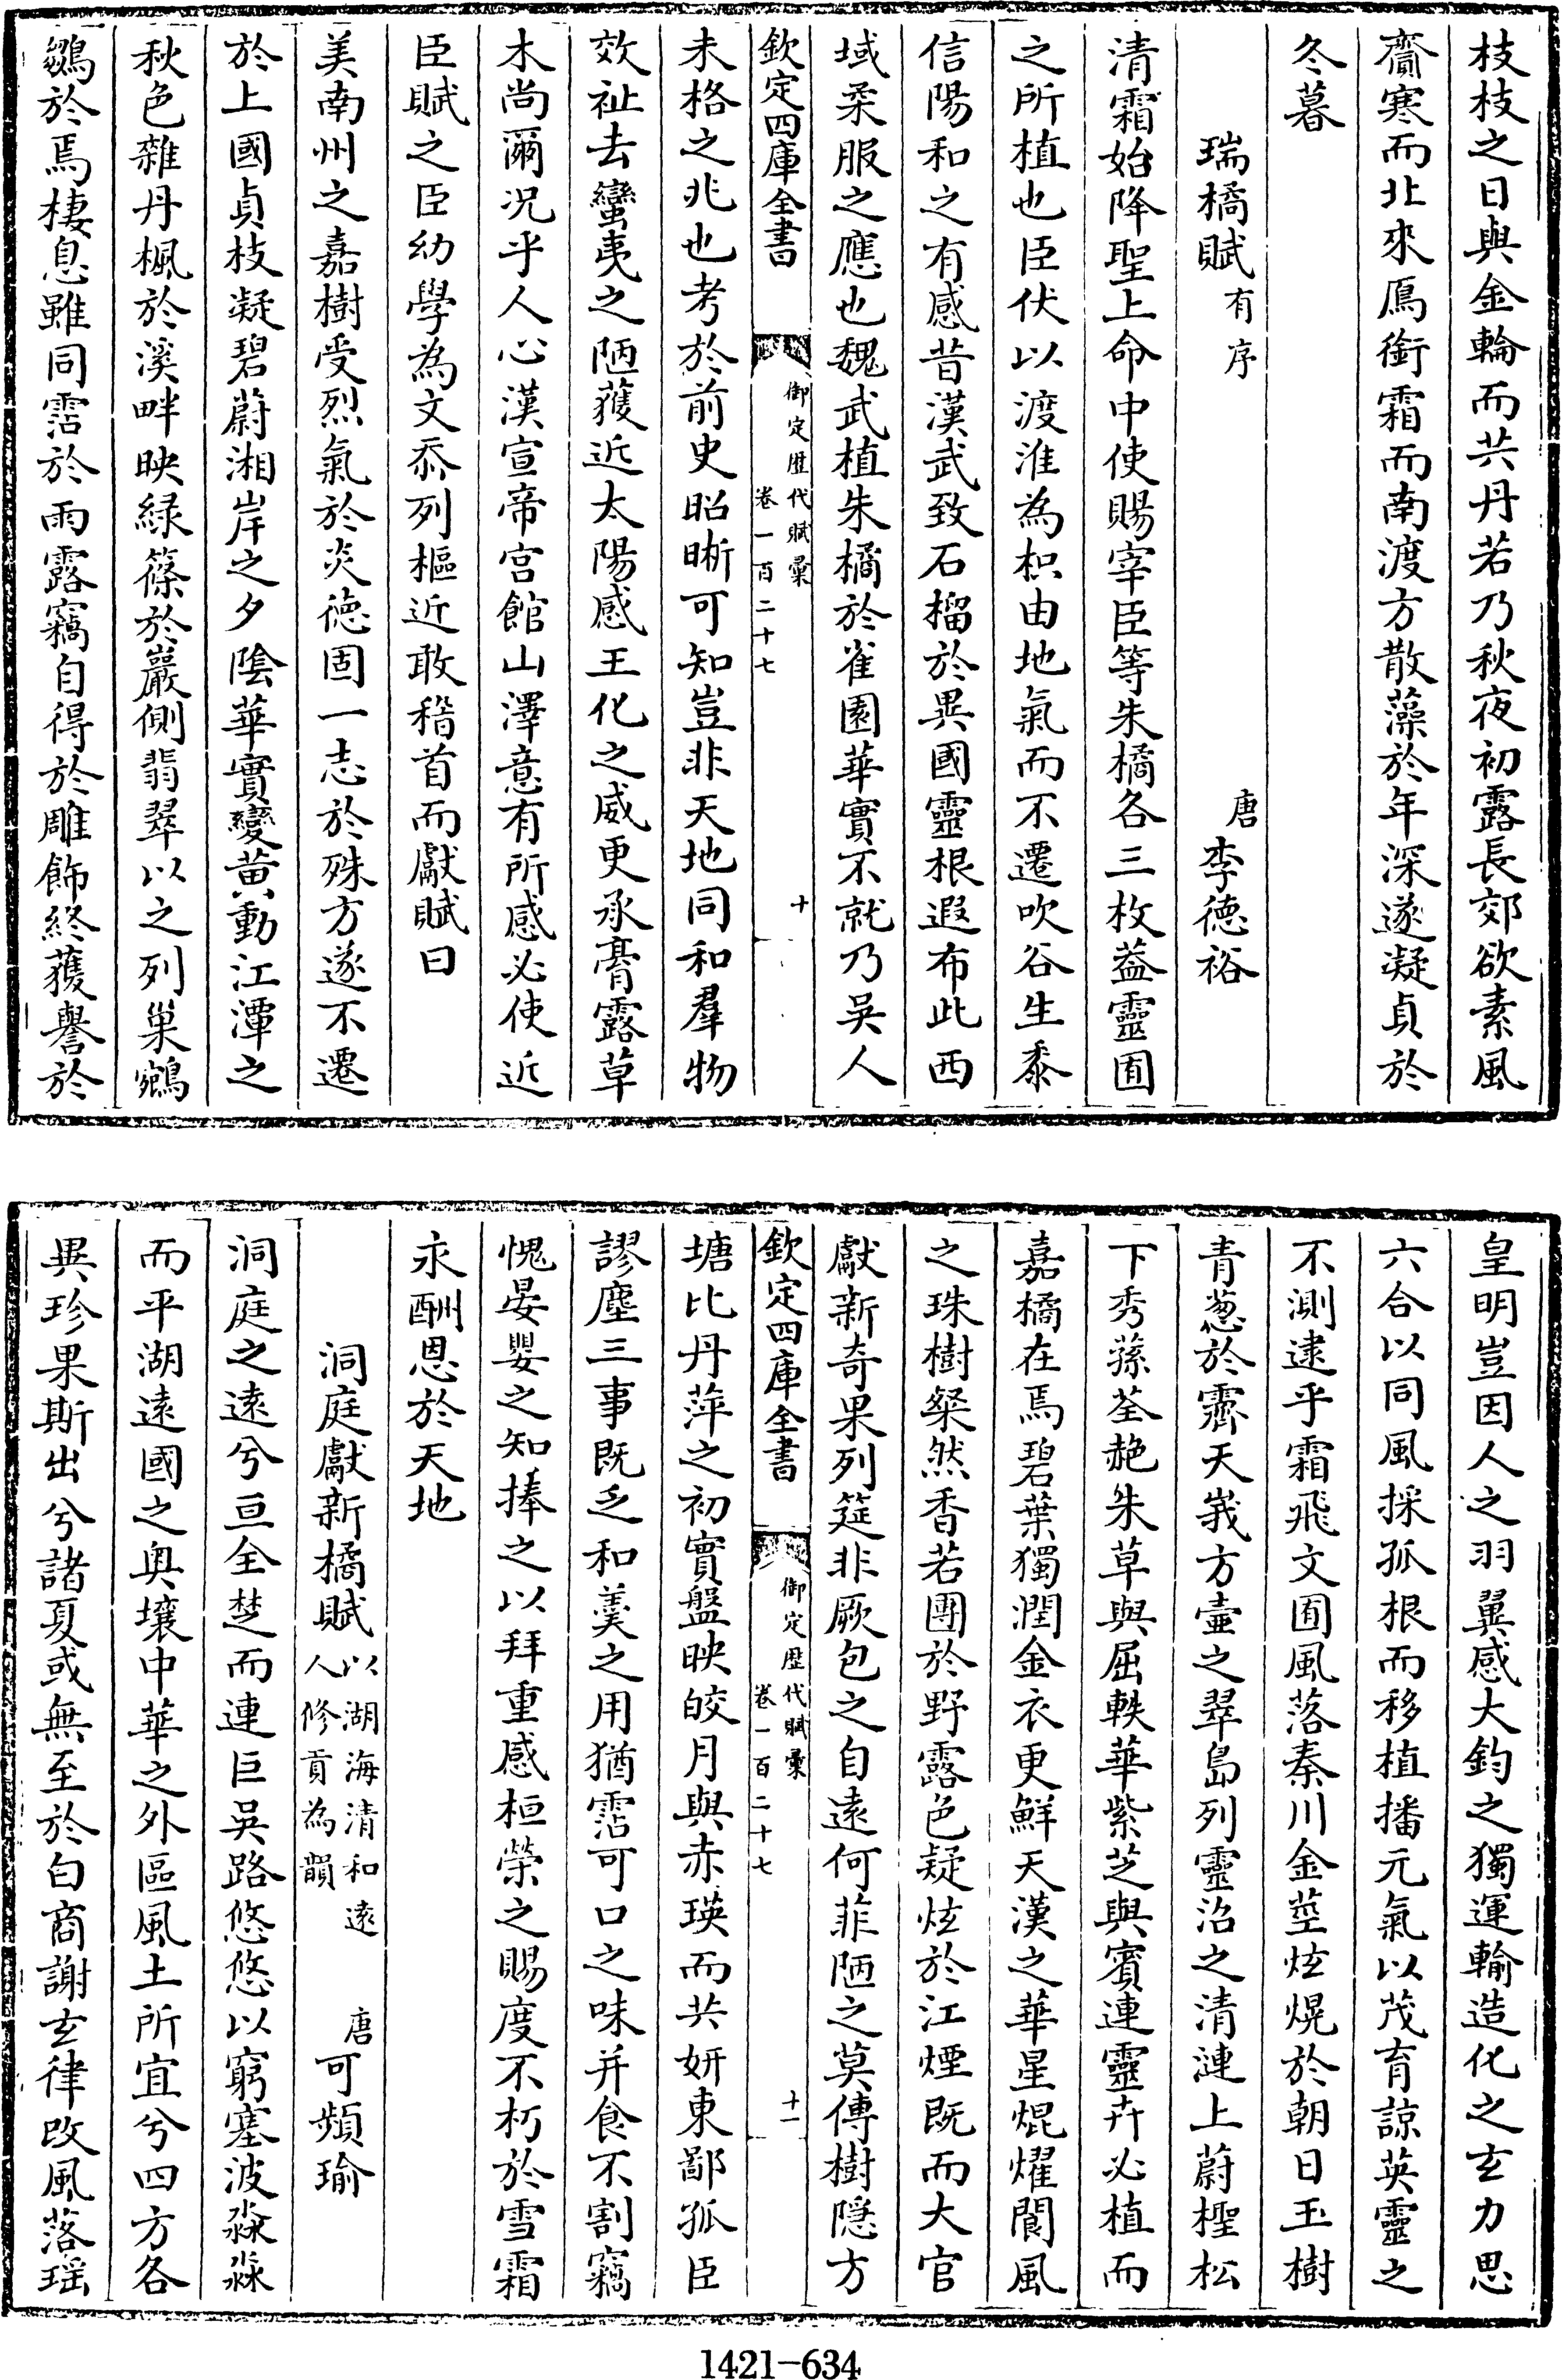 枝枝之日與金輪而共丹若乃秋夜初露長郊欲素風
齎寒而北來鴈銜霜而南渡方散藻於年深遂凝貞於
冬暮
瑞橘賦有序 唐李德裕
清霜始降聖上命中使賜宰臣等朱橘各三枚葢靈囿
之所植也臣伏以渡淮為枳由地氣而不遷吹谷生黍
信陽和之有感昔漢武致石榴於異國靈根遐布此西
域柔服之應也魏武植朱橘於雀園華實不就乃吳人
欽定四庫全書 御定歷代賦彙 卷一百二十七 十
未格之兆也考於前史昭晰可知豈非天地同和羣物
效祉去蠻夷之陋獲近太陽感王化之威更承膏露草
木尚爾况乎人心漢宣帝宮館山澤意有所感必使近
臣賦之臣幼學為文忝列樞近敢稽首而獻賦曰
美南州之嘉樹受烈氣於炎德固一志於殊方遂不遷
於上國貞枝凝碧蔚湘岸之夕陰華實變黃動江潭之
秋色雜丹楓於溪畔映緑篠於巖側翡翠以之列巢鵷
鶵於焉棲息雖同霑於雨露竊自得於雕飾終獲譽於
皇明豈因人之羽翼感大鈞之獨運輸造化之玄力思
六合以同風採孤根而移植播元氣以茂育諒英靈之
不測逮乎霜飛文囿風落秦川金莖炫熀於朝日玉樹
青葱於霽天峩方壷之翠島列靈沼之清漣上蔚檉松
下秀蓀荃赩朱草與屈軼華紫芝與賓連靈卉必植而
嘉橘在焉碧葉獨潤金衣更鮮天漢之華星焜燿閬風
之珠樹粲然香若團於野露色疑炫於江煙既而大官
獻新奇果列筵非厥包之自遠何菲陋之莫傳樹隱方
欽定四庫全書 御定歷代賦彙 卷一百二十七 十一
塘比丹萍之初實盤映皎月與赤瑛而共妍東鄙孤臣
謬塵三事既乏和羮之用猶霑可口之味并食不割竊
愧晏嬰之知捧之以拜重感桓榮之賜度不朽於雪霜
永酬恩於天地
洞庭獻新橘賦以湖海清和遠人修貢為韻 唐可頻瑜
洞庭之遠兮亘全楚而連巨吳路悠悠以窮塞波淼淼
而平湖遠國之奥壤中華之外區風土所宜兮四方各
異珍果斯出兮諸夏或無至於白商謝玄律改風落瑶
1421-634